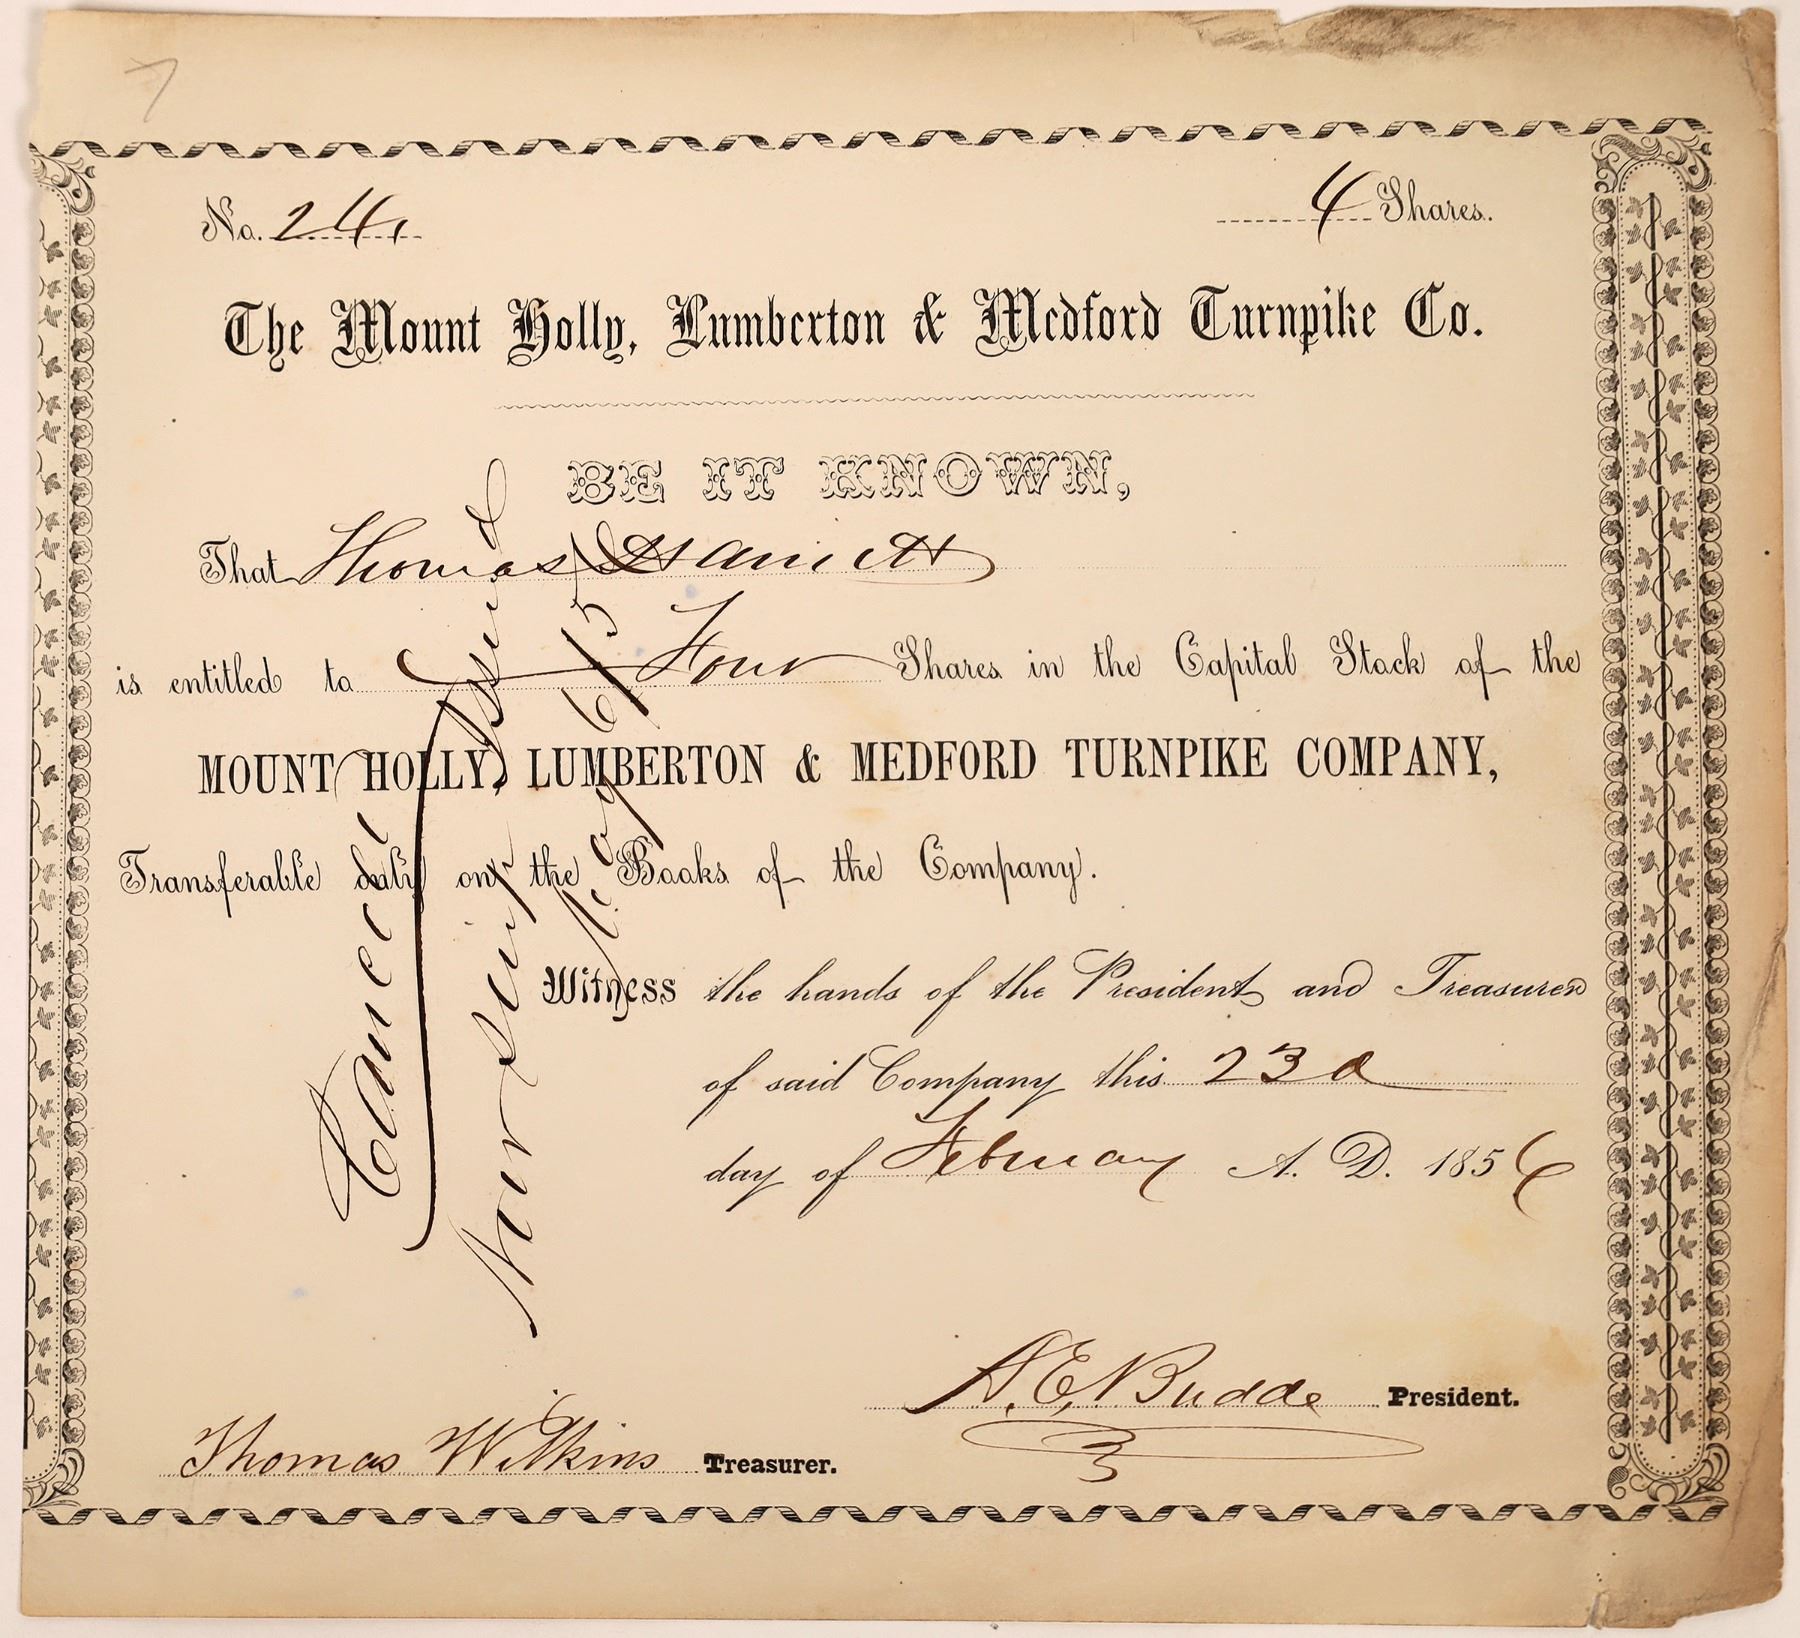 7
No. 24,
4 Shares.
The Mount Holly, Lumberton & Medford Turnpike Co.
BE IT KNOWN,
That Thomas
is entitled to Four Shares in the Capital Stock of the
MOUNT HOLLY, LUMBERTON & MEDFORD TURNPIKE COMPANY,
Transferable only on the Books of the Company.
Witness the hands of the President and Treasurer
of said Company this 23d
day of February A. D. 1854
A. E. Budd President.
Thomas Wilkins Treasurer.
Canceled
Issued
New scrip